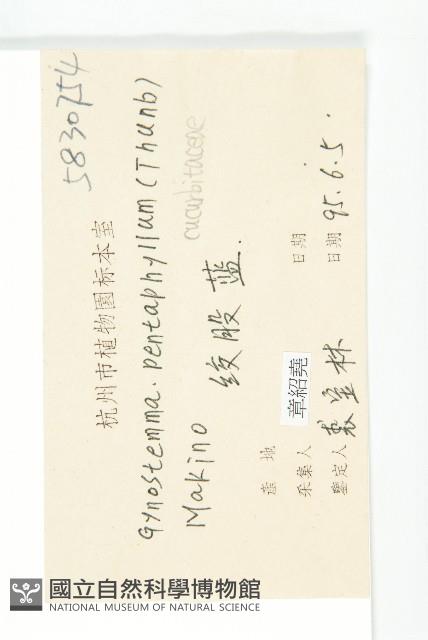 5830754
杭州市植物園标本室
Gynostemma. pentaphyllum (Thunb)
Makino
cucurbitaceae
绞股蓝.
產 地
采集人 章紹堯 日期
鑒定人 日期 95.6.5.
國立自然科學博物館
NATIONAL MUSEUM OF NATURAL SCIENCE